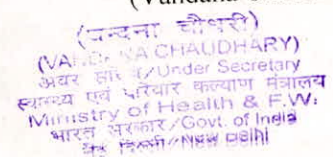 (Vandana
(वन्दना चौधरी)
(VANDANA CHAUDHARY)
अवर सचिव/Under Secretary
स्वास्थ्य एवं परिवार कल्याण मंत्रालय
Ministry of Health & F.W.
भारत सरकार/Govt. of India
नई दिल्ली/New Delhi